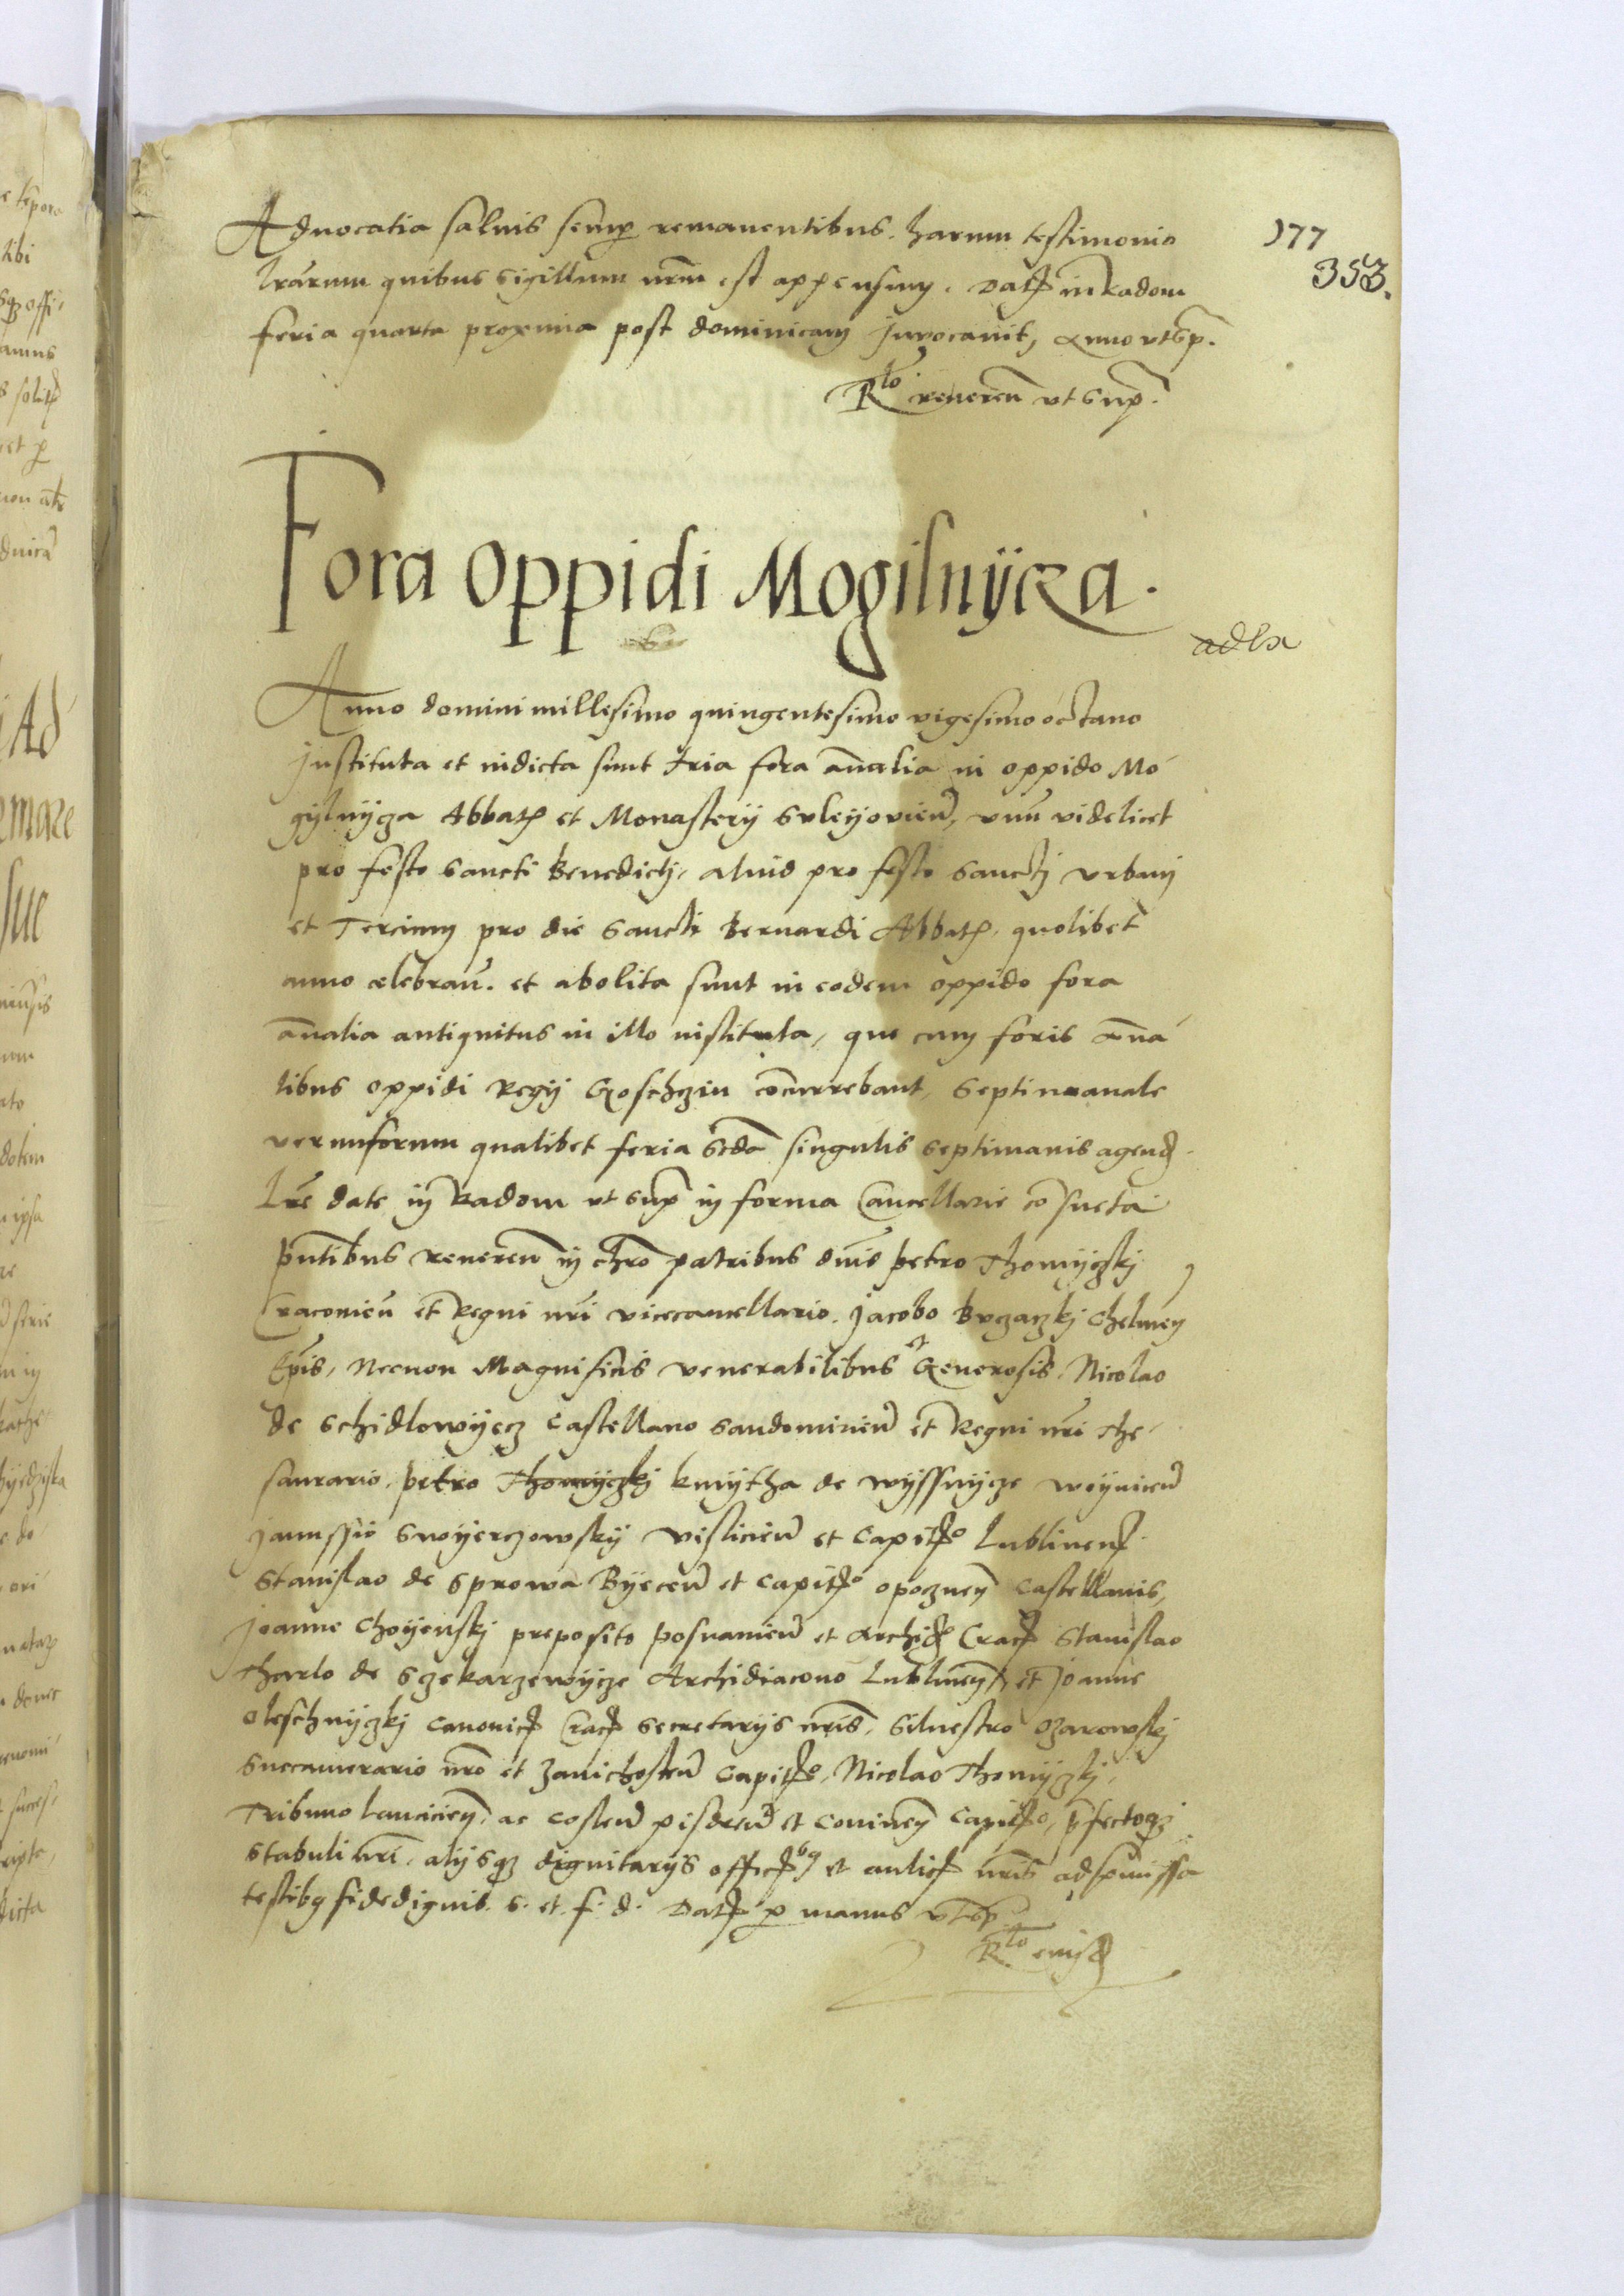 Aduocatia saluis semp remanentibus. harum testimonio
lrarum quibus sigillum nrm est appensum. Dat in Radom
feria quarta proxima post dominicam Inuocauit, Anno vt sup.
Rlo reueren vt sup.
177
353.
Fora oppidi Mogilnÿcza.
Anno domini millesimo quingentesimo vigesimo octauo
Instituta et indicta sunt tria fora analia in oppido Mo
gylnycza Abbat et Monasterij Suleyouien, vnu videlicet
pro festo Sancti Benedicti, aliud pro festo Sanctj vrbanj
et Tercium pro die Sancti Bernardi Abbat, quolibet
anno celebran. et abolita sunt in eodem oppido fora
analia antiquitus in illo instituta, que cum foris ana
libus oppidi Regij Goschczin concurrebant, Septimanale
verumforum qualibet feria Scda singulis septimanis agend.
Lre date in Radom vt sup in forma Cancellarie consueta
pntibus reueren in chro patribus dnis Petro Thomyczkj
Cracouien et Regni nri vicecancellario. Jacobo Buczaczkj Chelmen
Epis, Necnon Magnificis venerabilibus et Generosis. Nicolao
de Schidlowyecz Castellano Sandomirien et Regni nri The
saurario. Petro Thomyczkj kmytha de wyssnycze woynicien
Janussio Swyerczowsky visliciem et Capito Lublinen.
Stanislao de Sprowa Byecen et Capito opocznen Castellanis,
Joanne Choyenskj preposito Posnanien et Archid Crac Stanislao
Tharlo de Sczekarzewycze Archidiacono Lublinen, et Joanne
oleschnyczkj Canonic Crac Secretarijs nris, Siluestro Ozarowskj
Succamerario nro et Zauichosten Capito, Nicolao Thomyczkj,
Tribuno lanciciem, ac Costen pisdren et Coninen Capito, pfectoq
Stabuli nri, alijsq dignitarijs officbq et aulic nris ad pmissa
testibq fidedignis. s. et. f. d. Dat p manus vt sup
Rlo eiusd